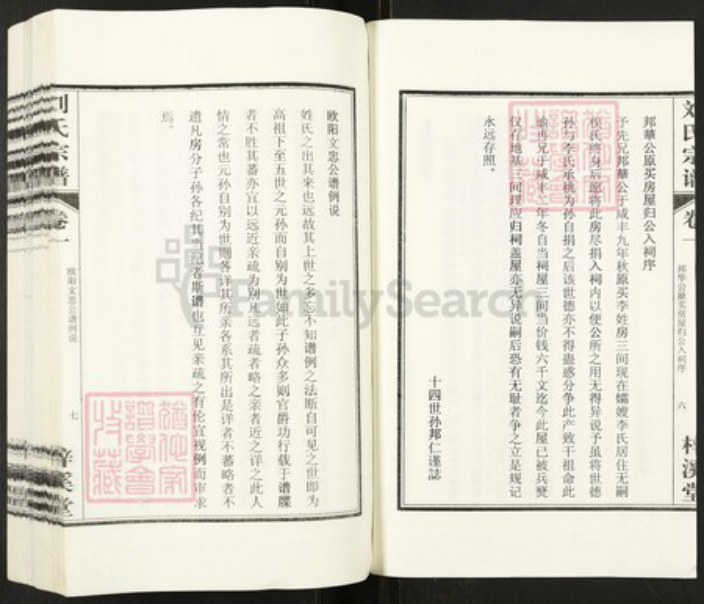 邦華公原买房屋归公入祠序
予先兄邦華公于咸丰九年秋原买李姓房三间现在孀嫂李氏居住无嗣
侯氏终身后愿将此房尽捐入祠内以便公所之用无得异说予虽将世德
孙与李氏承桃为孙自捐之后该世德亦不得蛊惑分争此产致干祖命此
喻再兄于咸丰二年冬自当祠屋三间当价钱六千文迄今此屋已被兵燹
仅存地基三间理应归祠盖屋亦无异说嗣后恐有无耻者争之立是规记
永远存照。
十四世孙邦仁谨誌
刘氏宗谱
卷一
邦华公原买房屋归公入祠序
六
梓溪堂
欧阳文忠公谱例说
姓氏之出其来也远故其上世之多忘不知谱例之法断自可见之世即为
高祖下至五世之元孙而自别为世如此子孙众多则官爵功行载于谱牒
者不胜其蕃亦宜以远近亲疏为别凡远者疏者略之亲者近之详之此人
情之常也元孙自别为世则各详其所亲各系其所出是详者不蕃略者不
遗凡房分子孙各纪其当纪者斯谱也互见亲疏之有伦宜视例而审求
焉。
刘氏宗谱
卷一
欧阳文忠公谱例说
七
梓溪堂
FamilySearch